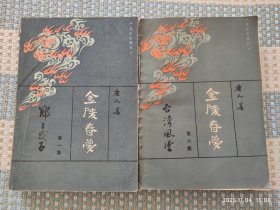 金陵春梦
唐人著
郑三发子
第一集
金陵春梦
唐人著
台湾风云
第六集
2025.11.06 15:06